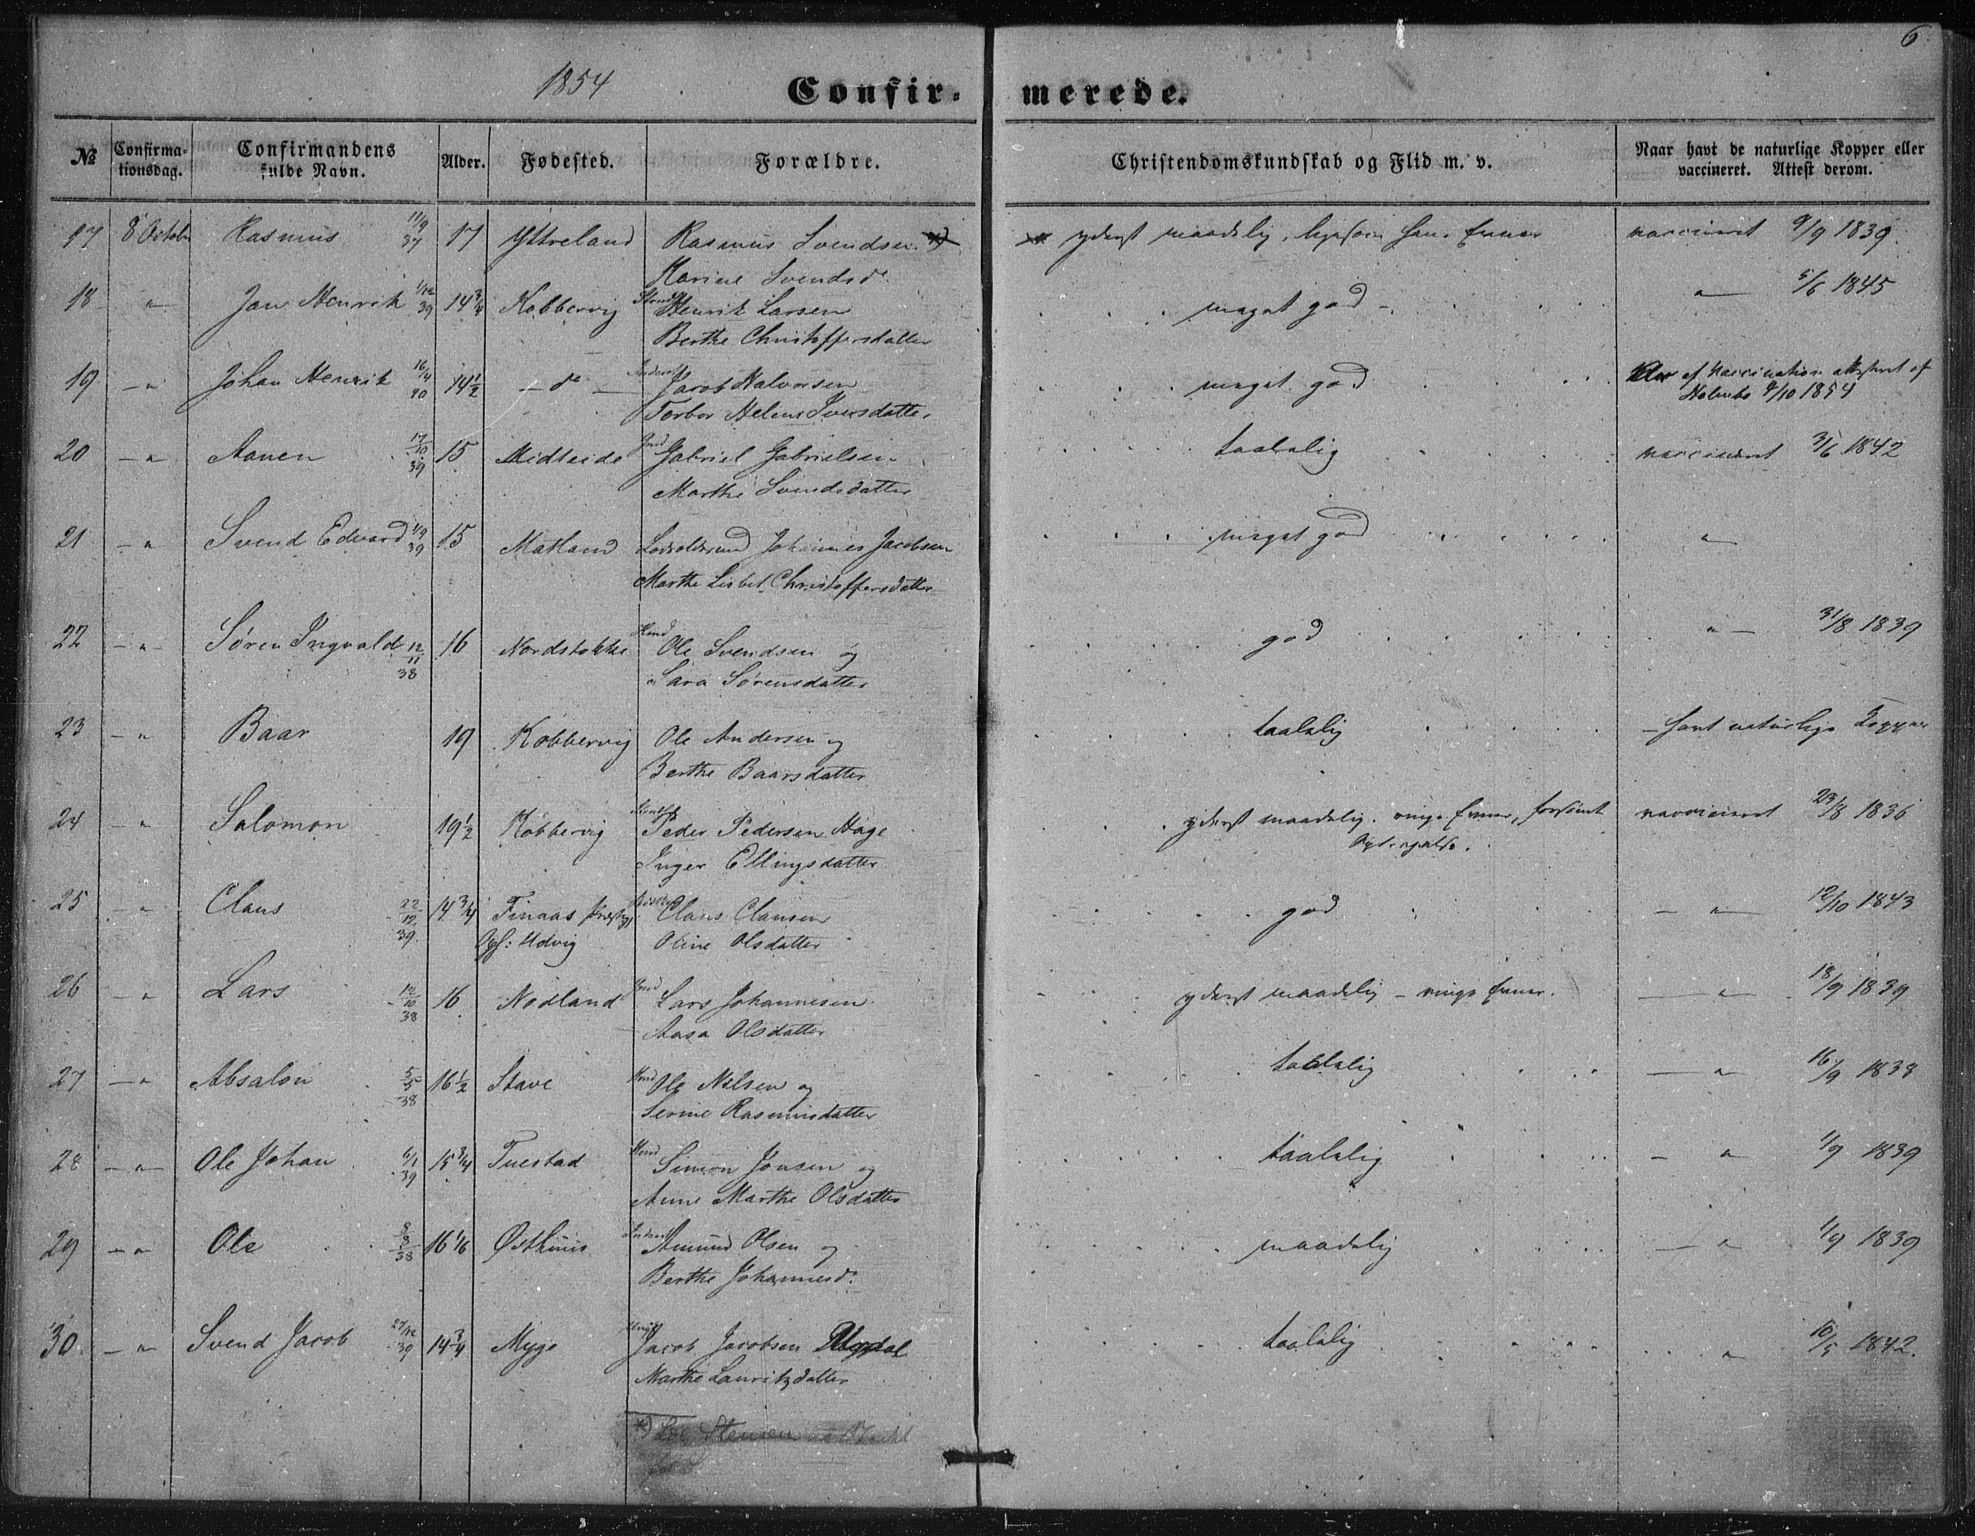 6
1854
Confir-merede.
№ Confirmationsdag. Confirmandens fulde Navn. Alder. Fødested. Forældre. Christendomskundskab og Flid m. v. Naar havt de naturlige Kopper eller vaccineret. Attest derom.
17 8 Octob Rasmus 11/9 37 17 Yttreland Rasmus Svendsen *) yderst maadelig, vaccineret 9/9 1839.
Marine Svendsd.
18 " Jan Henrik 1/12 39 14 3/4 Kobbervig Henrik Larsen meget god " 5/6 1845
Berthe Christoffersdatter
19 " Johan Henrik 16/4 40 14 1/2 - do - Jacob Halvorsen meget god af Vaccination attesteret af
Torbor Helene Iversdatter Holmbo 4/10 1854
20 " Aanen 17/10 39 15 Midteide Gabriel Gabrielsen taalelig vaccineret 3/6 1842
Marthe Svendsdatter
21 " Svend Edvard 1/9 39 15 Matland Johannes Jacobsen meget god "
Marthe Lisbet Christoffersdatter
22 " Søren Ingvald 12/11 38 16 Nordstokke Ole Svendsen og god " 31/8 1839
Sara Sørensdatter
23 " Baar 19 Kobbervig Ole Andersen og taalelig havt naturlige Kopper
Berthe Baarsdatter
24 " Salomon 19 1/2 Kobbervig Peder Pedersen Hage yderst maadelig. ringe Evner, forsømt vaccineret 23/8 1836
Inger Ellingsdatter
25 " Claus 22/12 39. 14 3/4 Finaas Claus Clausen god " 12/10 1843
Opf: Udvig Oline Olsdatter
26 " Lars 12/10 38 16 Nodland Lars Johannesen yderst maadelig - ringe Evner. " 18/9 1839
Aasa Olsdatter
27 " Absalon 5/5 38 16 1/2 Stave Ole Nilsen og taalelig " 16/9 1838
Serine Rasmusdatter
28 " Ole Johan 6/1 39 15 3/4 Tuestad Simon Jonsen og taalelig " 1/9 1839
Anne Marthe Olsdatter
29 " Ole 8/8 38 16 1/6 Østhuus Amund Olsen og maadelig " 1/9 1839
Berthe Johannesd.
30. " Svend Jacob 27/12 39 14 3/4 Myge Jacob Jacobsen taalelig " 10/5 1842.
Marthe Lauritzdatter
*)